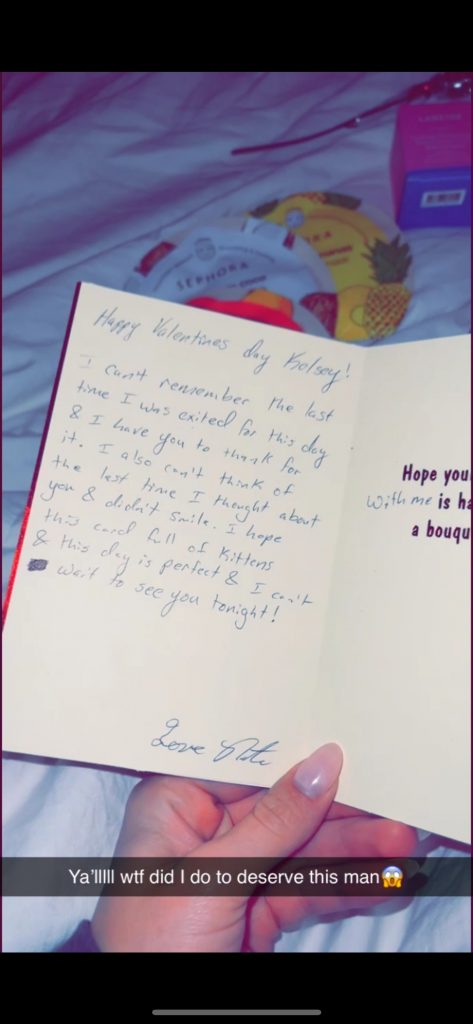 SEPHORA
Happy Valentines day Kelsey!
I can't remember the last
time I was exited for this day
& I have you to thank for
it. I also can't think of
the last time I thought about
you & didn't smile. I hope
this card full of kittens
& this day is perfect & I can't
wait to see you tonight!
Love
Hope you
with me is ha
a bouqu
Ya'lllll wtf did I do to deserve this man😱